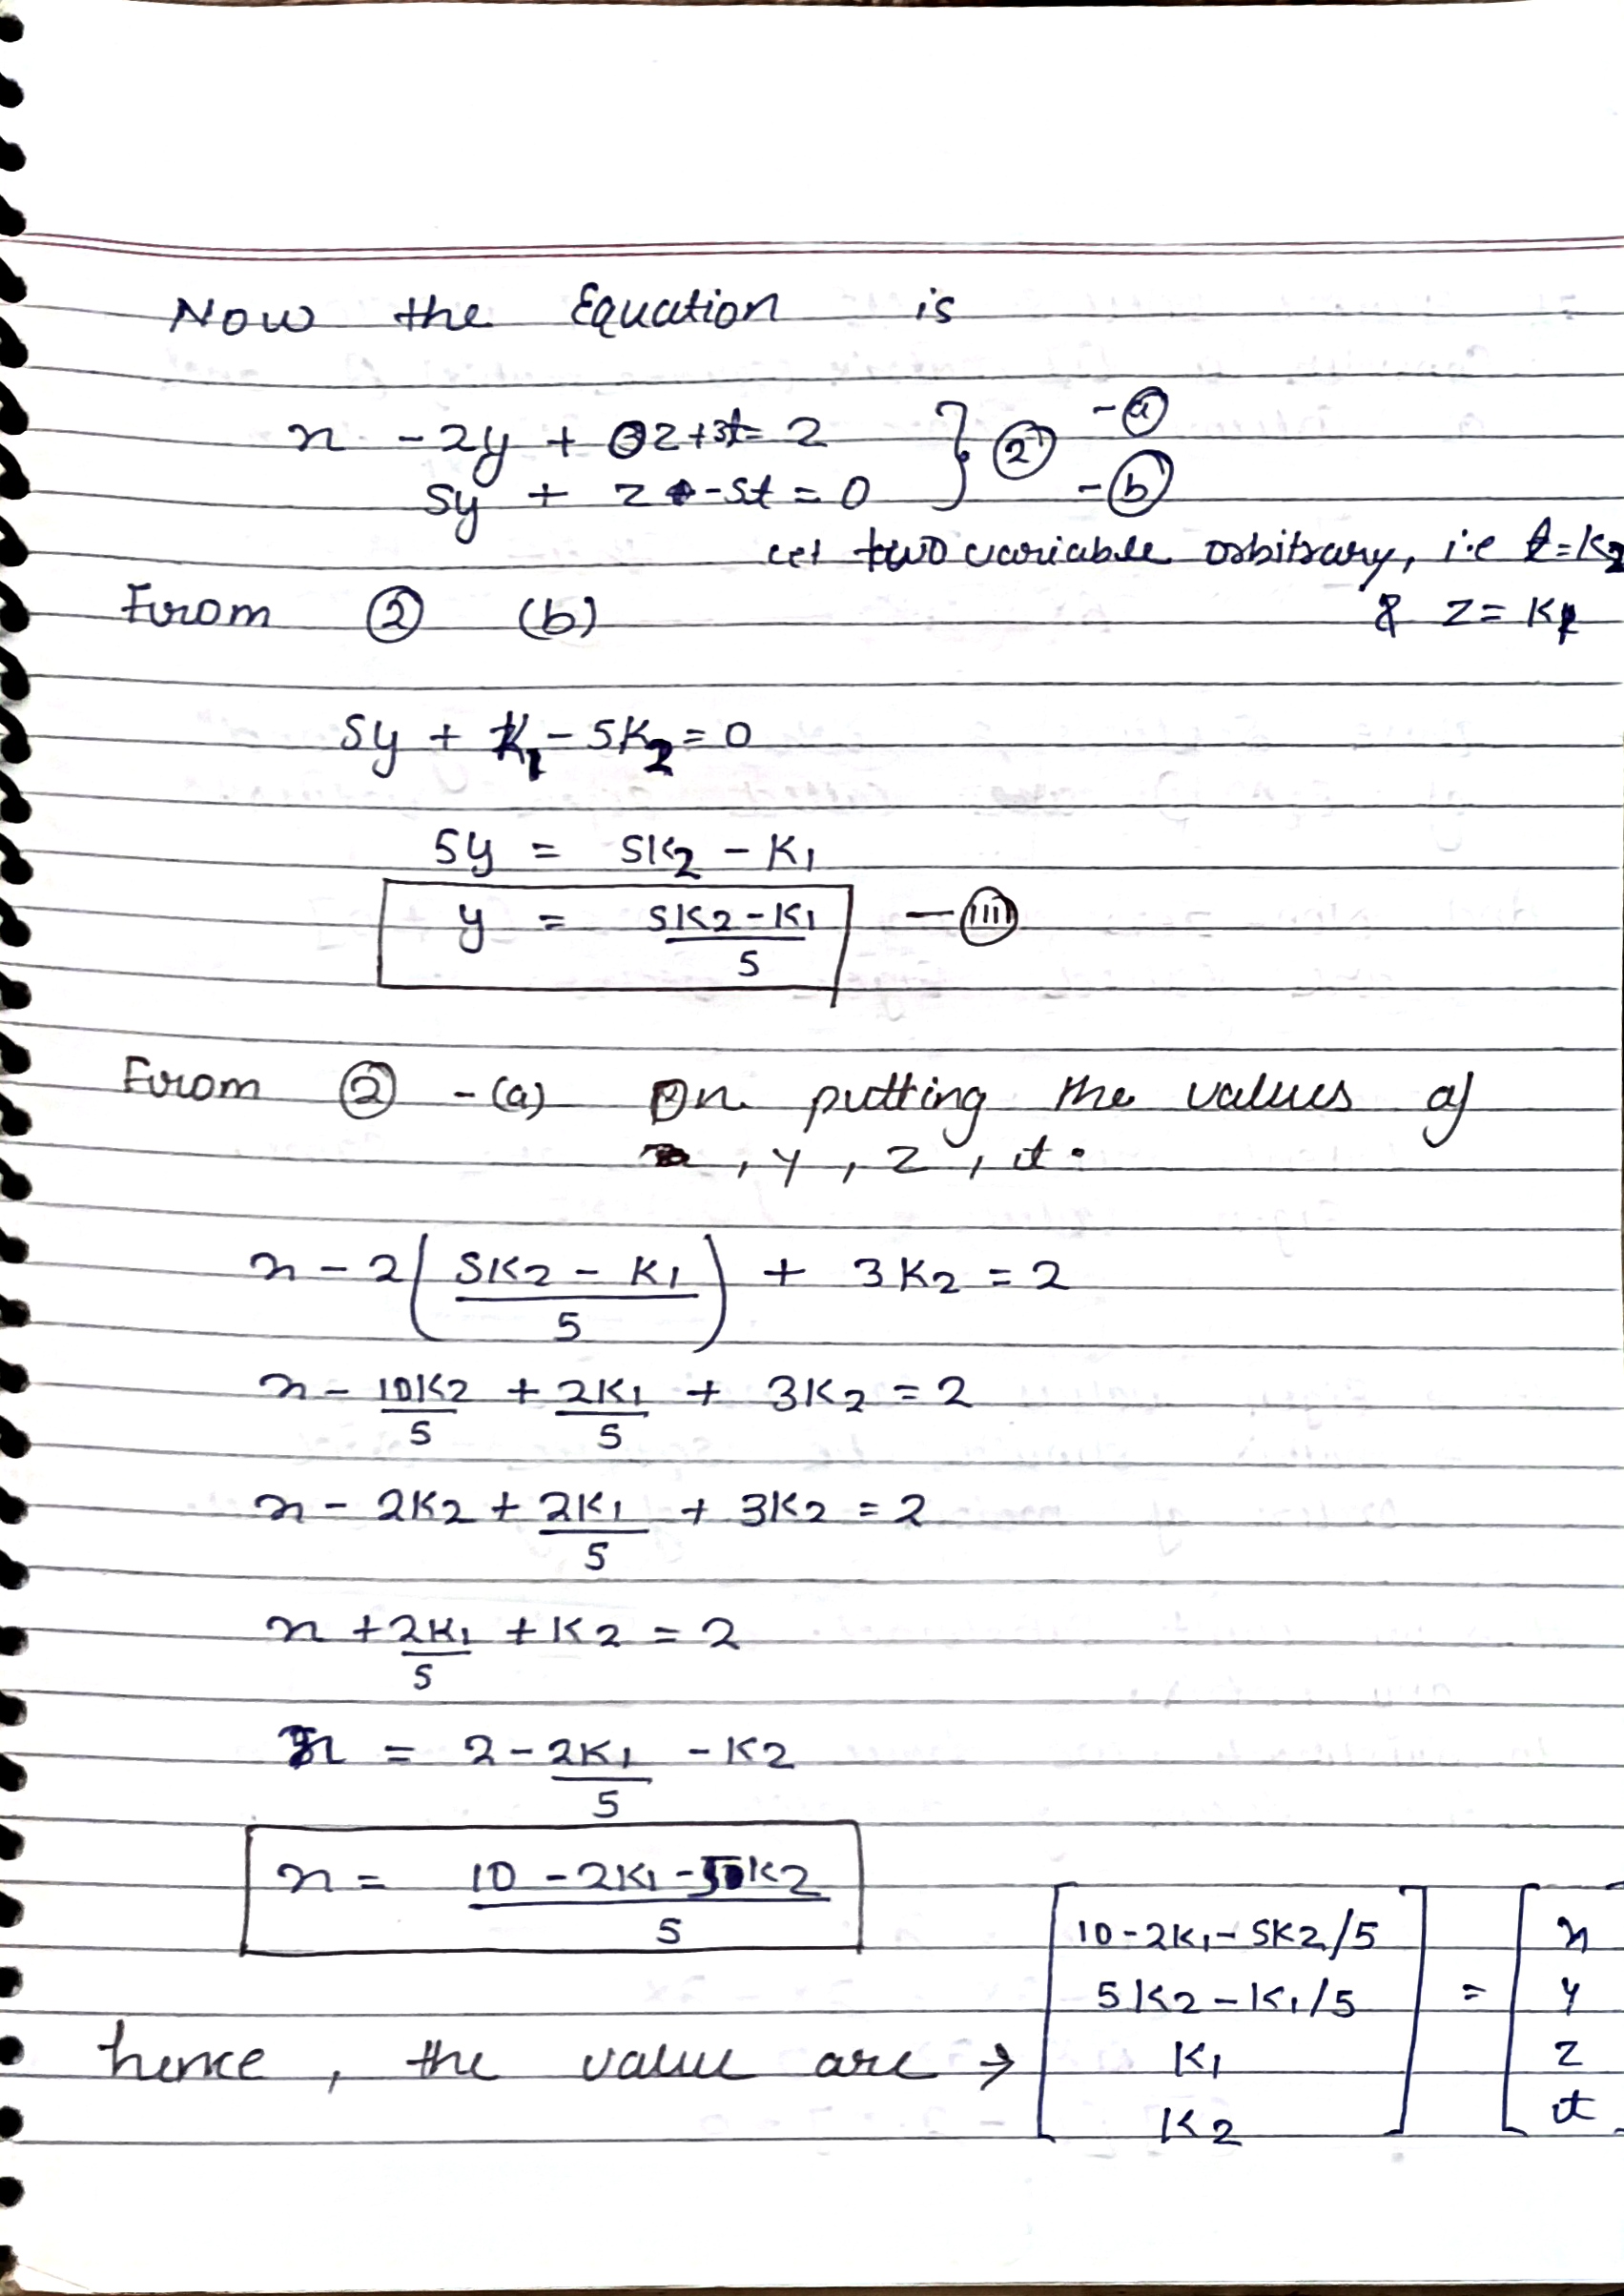 Now the Equation is
x - 2y + 0z + 3t = 2 } ② - ⓐ
5y + z - 5t = 0 - ⓑ
let two variable orbitrary, i.e t = K2
& z = K1
From ② (b)
5y + K1 - 5K2 = 0
5y = 5K2 - K1
y = (5K2 - K1)/5 — (iii)
From ② - (a) On putting the values of
, y, z, t.
x - 2((5K2 - K1)/5) + 3K2 = 2
x - 10K2/5 + 2K1/5 + 3K2 = 2
x - 2K2 + 2K1/5 + 3K2 = 2
x + 2K1/5 + K2 = 2
x = 2 - 2K1/5 - K2
x = (10 - 2K1 - 5K2)/5
hence, the value are → [10-2K1-5K2/5, 5K2-K1/5, K1, K2] = [x, y, z, t]